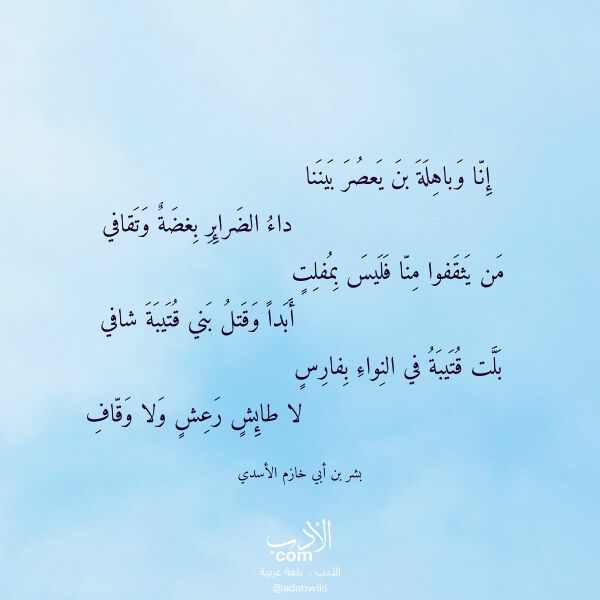 إِنّا وَباهِلَةَ بنَ يَعصُرَ بَينَنا
داءُ الضَرايِرِ بِغضَةٌ وَتَقافي
مَن يَثقَفوا مِنّا فَلَيسَ بِمُفلِتٍ
أَبَداً وَقَتلُ بَني قُتَيبَةَ شافي
بَلَّت قُتَيبَةُ في النِواءِ بِفارِسٍ
لا طائِشٍ رَعِشٍ وَلا وَقّافِ
بشر بن أبي خازم الأسدي
الأدب
com
الأدب .. بلغة عربية
@adabwiki